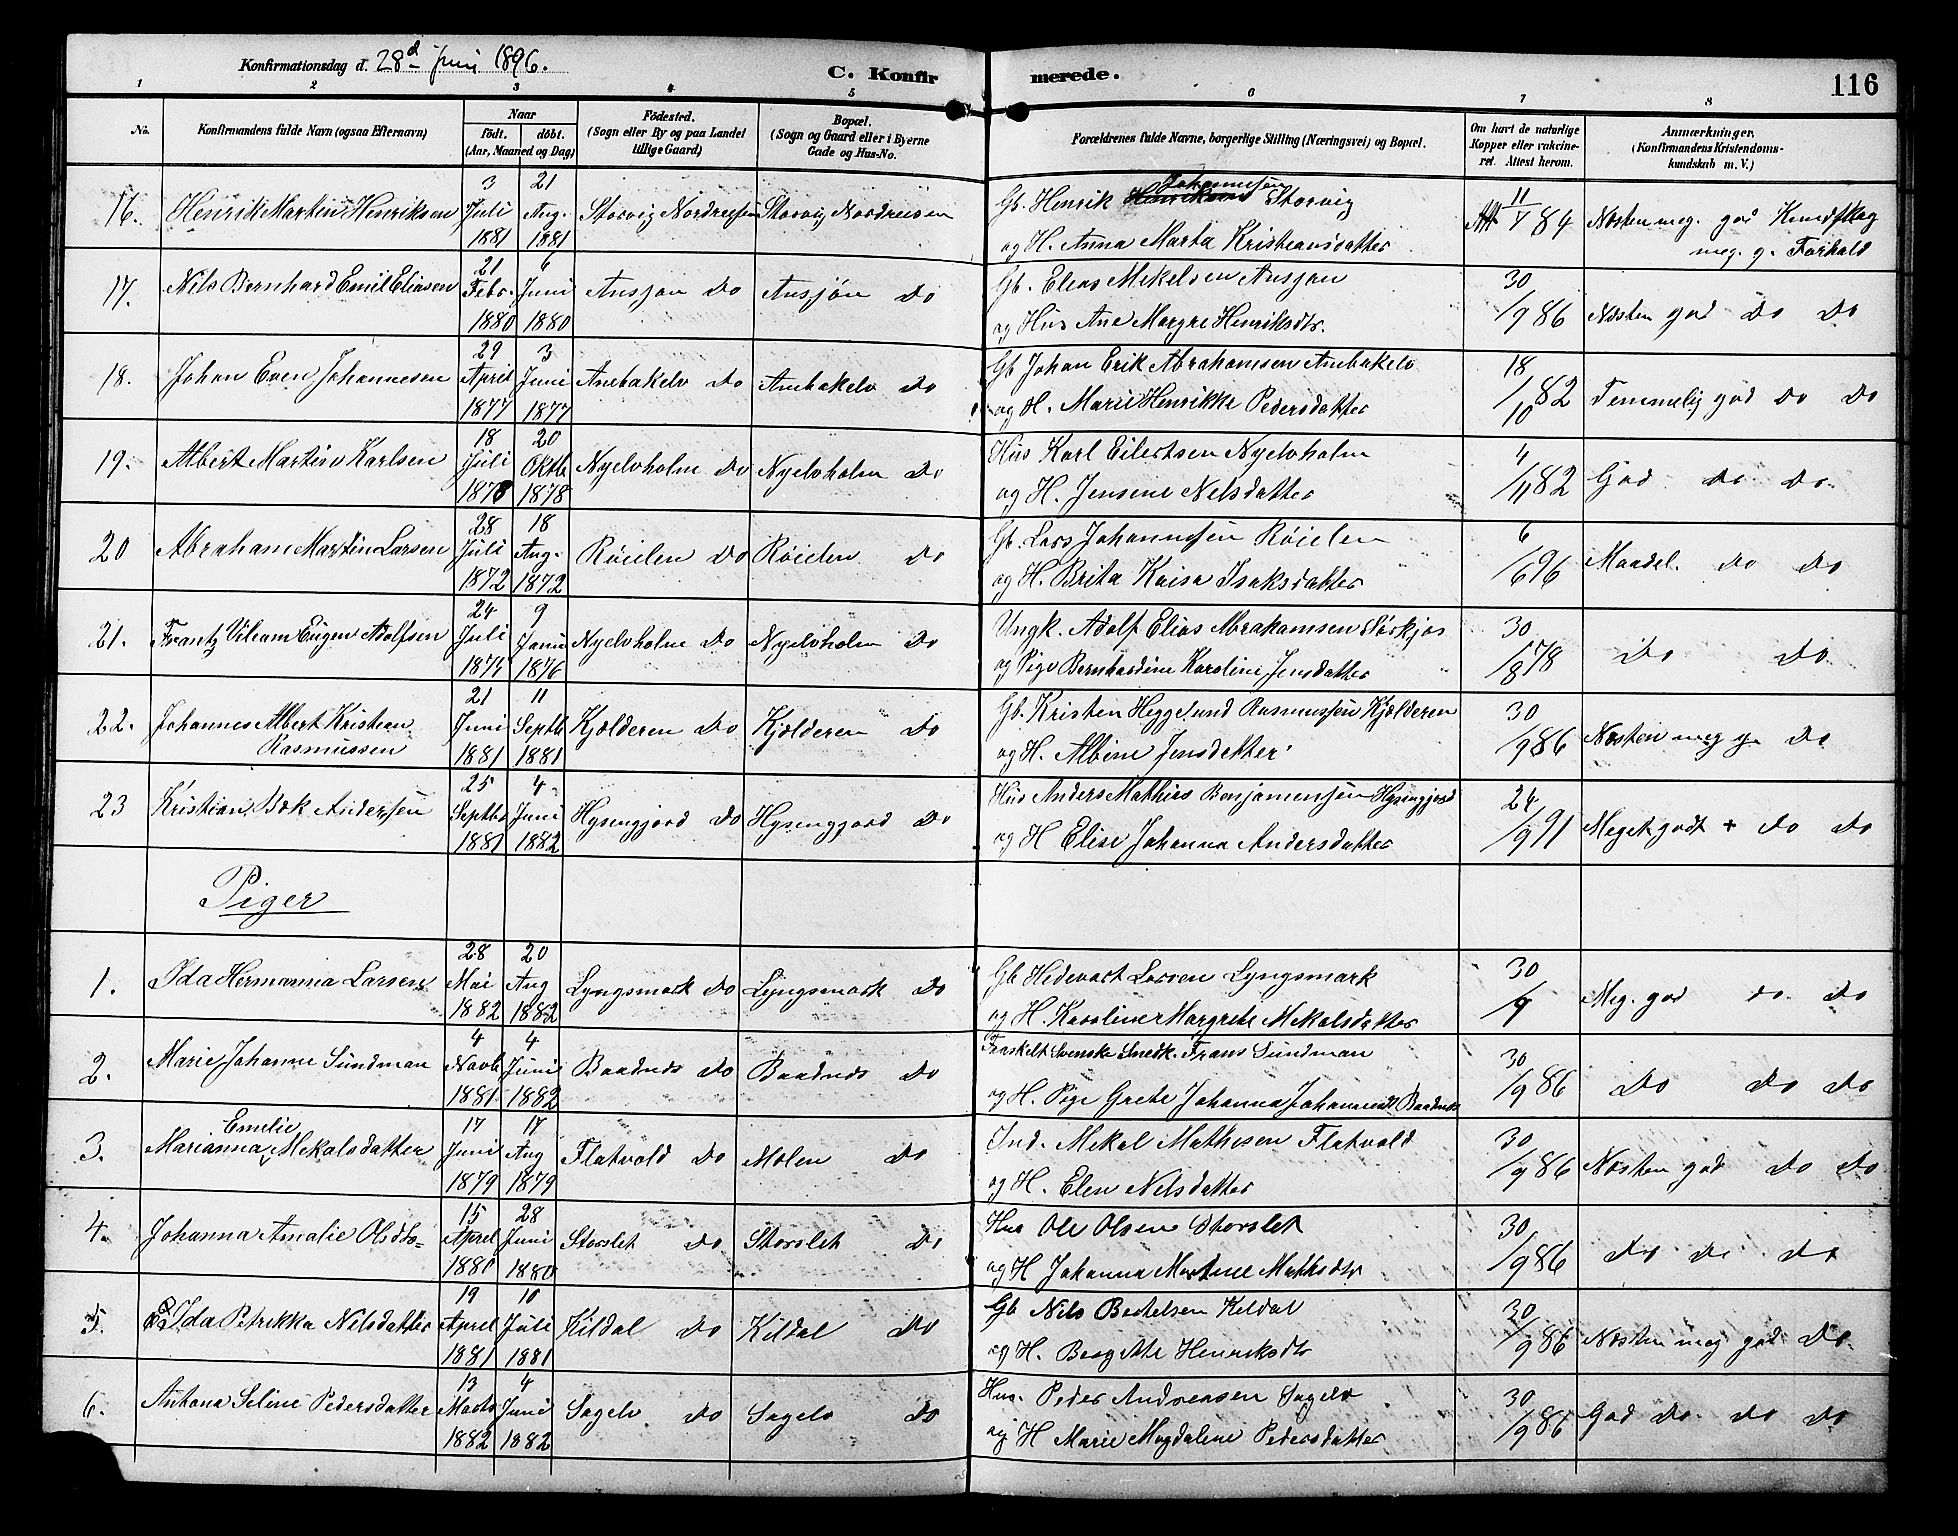 Konfirmationsdag d. 28d Juni 1896.
C. Konfirmerede.
116
1 2 3 4 5 6 7 8
No.
Konfirmandens fulde Navn (ogsaa Efternavn)
Naar
födt. döbt.
(Aar, Maaned og Dag)
Födested.
(Sogn eller By og paa Landet
tillige Gaard)
Bopæl.
(Sogn og Gaard eller i Byerne
Gade og Hus-No.
Forældrenes fulde Navne, borgerlige Stilling (Næringsvei) og Bopæl.
Om havt de naturlige
Kopper eller vakcine-
ret. Attest herom.
Anmærkninger,
(Konfirmandens Kristendoms-
kundskab m. V.)
16. Henrik Martin Henriksen
3 Juli 1881
21 Aug. 1881
Storvig Nordreisen
Storvig Nordreisen
Gb. Henrik Johannesen Storvig
og H. Anna Marta Kristiansdatter
Att 11/V 84
Næsten meg. god Kundskag
meg. g. Forhold
17. Nils Bernhard Emil Eliasen
21 Febr. 1880
6 Juni 1880
Ansjøn Do
Ansjøn Do
Gb. Elias Mikelsen Ansjøn
og Hus Ane Margre Henriksdtr.
30/9 86
Næsten god Do Do
18. Johan Even Johannesen
29 April 1877
3 Juni 1877
Ambakelv Do
Ambakelv Do
Gb Johan Erik Abrahamsen Ambakelv
og H. Marie Henrikke Pedersdatter
18/10 82
Temmelig god Do Do
19. Albert Martin Karlsen
18 Juli 1878
20 Oktb 1878
Nyelvholm Do
Nyelvholm Do
Hus Karl Eilertsen Nyelvholm
og H. Jensine Nelsdatter
4/11 82
God Do Do
20 Abraham Martin Larsen
28 Juli 1872
18 Aug. 1872
Røielen Do
Røielen Do
Gb. Lars Johannesen Røielen
og H. Brita Kaisa Isaksdatter
6/6 96
Maadel. Do Do
21. Frantz Viliam Eugen Adolfsen
24 Juli 1875
9 Janu 1876
Nyelvholm Do
Nyelvholm Do
Ungk. Adolf Elias Abrahamsen Sørkjos
og Pige Bernhardine Karoline Jensdatter
30/8 78
Do Do
22. Johannes Albert Kristian
Rasmussen
21 Juni 1881
11 Septb 1881
Kjælderen Do
Kjælderen Do
Gb. Kristen Heggelund Rasmussen Kjælderen
og H. Albine Jensdatter
30/9 86
Næsten meg g. Do
23 Kristian Bæk Andersen
25 Septbr 1881
4 Juni 1882
Hysingjord Do
Hysinggjord Do
Hus Anders Mathies Benjamensen Hysingjord
og H Elise Johanna Andersdatter
24/9 91
Meget godt + Do Do
Piger
1. Ida Hermanna Larsen
28 Mai 1882
20 Aug 1882
Lyngsmark Do
Lyngsmark Do
Gb Hedevart Larsen Lyngsmark
og H. Karoline Margrete Mekalsdatter
30/9
Meg. god Do Do
2. Marie Johanne Sundman
4 Novb 1881
4 Juni 1882
Baadnes Do
Baadnes Do
Fraskelt Svenske Snedk. Frans Sundman
og H. Pige Grete Johanna Johannesdt Baadnes
30/9 86
Do Do Do
3. Marianna Emilie Mekalsdatter
17 Juni 1879
17 Aug 1879
Flatvold Do
Molen Do
Ind. Mekal Mathesen Flatvold
og H. Elen Nelsdatter
30/9 86
Næsten god Do Do
4. Johanna Amalie Olsdtr
15 April 1880
28 Juni 1880
Storslet Do
Storslet Do
Hus Ole Olsen Storslet
og H Johanna Martine Mathsdtr
30/9 86
Do Do Do
5. Ida Petrikka Nilsdatter
19 April 1881
10 Juli 1881
Kildal Do
Kildal Do
Gb Nils Bertelsen Kildal
og H. Bergitte Henriksdtr
30/9 86
Næsten meg god Do
6. Antona Seline Pedersdatter
13 Marts 1882
4 Juni 1882
Sagelv Do
Sagelv Do
Hus. Peder Andreasen Sagelv
og H Marie Magdalene Pedersdatter
30/9 86
God Do Do Do